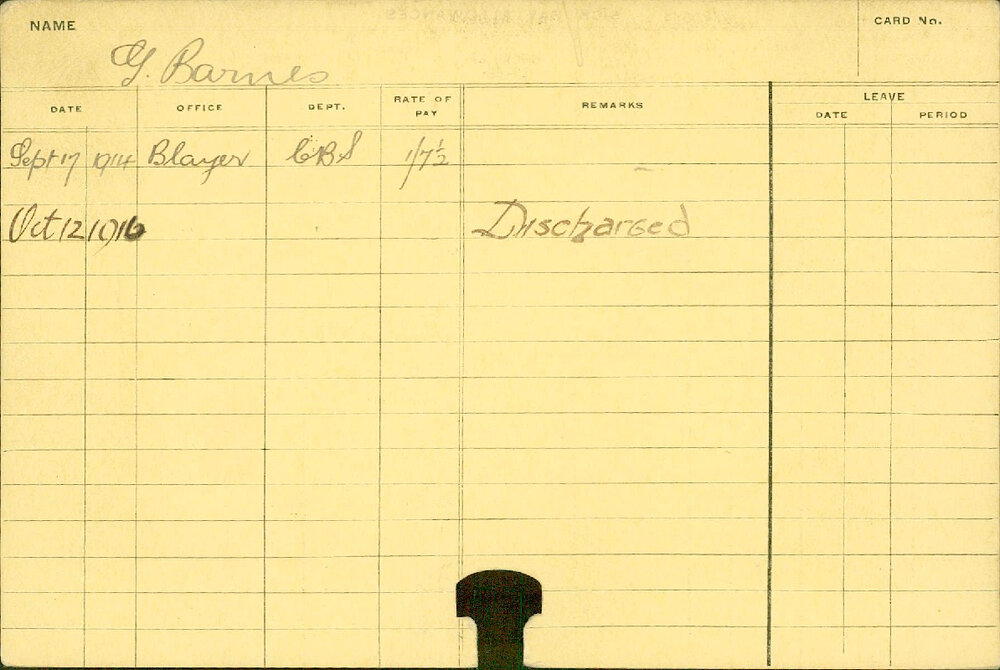 NAME
CARD No.
G. Barnes
DATE OFFICE DEPT. RATE OF PAY REMARKS LEAVE
DATE PERIOD
Sept 17 1914 Blayer CBS 1/7½
Oct 12 1916 Discharged